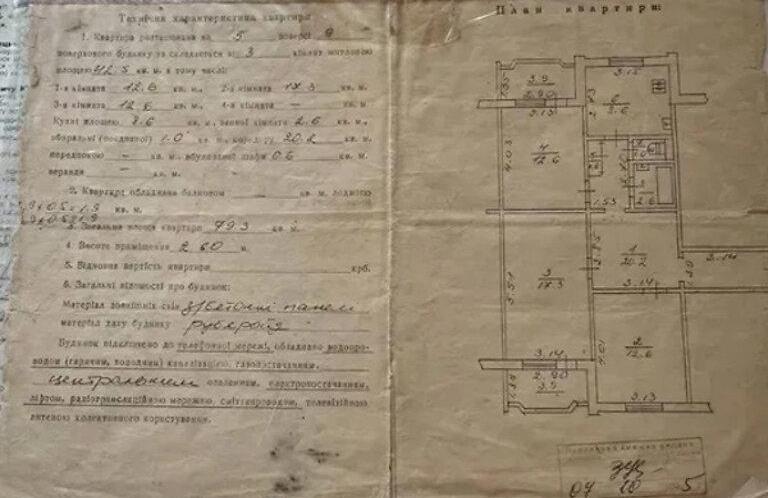 Технічна характеристика квартири
1. Квартира розташована на 5 поверсі 9
поверхового будинку та складається з 3 кімнат житловою
площею 42.5 кв. м. в тому числі:
1-а кімната 12.6 кв. м., 2-а кімната 17.3 кв. м.
3-я кімната 12.6 кв. м., 4-а кімната — кв. м
Кухні площею 8.6 кв. м., ванної кімнати 2.6 кв. м.,
вбиральні 1.0 кв. м., коридору 20.2 кв. м.
— кв. м., вбудованої шафи 0.6 кв. м.
веранди — кв. м.
2. Квартира обладнана балконом кв. м. лоджією
кв. м.
3. Загальна площа квартири 79.3 кв. м.
4. Висота приміщення 2.60 м.
5. Відновна вартість квартири крб.
6. Загальні відомості про будинок:
Матеріал зовнішніх стін з/бетонні панелі
матеріал даху будинку
Будинок підключено до телефонної мережі, обладнано водопро-
водом (гарячим, холодним) каналізацією, газопостачанням,
центральним опаленням, електропостачанням,
ліфтом, радіотрансляційною мережею, сміттєпроводом, телевізійною
антеною колективного користування.
План квартири
3.9
2.90
3.13
3.15
6
8.6
4
12.6
4.03
1.0
2.6
1.53
1
20.2
3.14
3
17.3
5.51
3.14
2.90
3.9
2
12.6
4.01
3.13